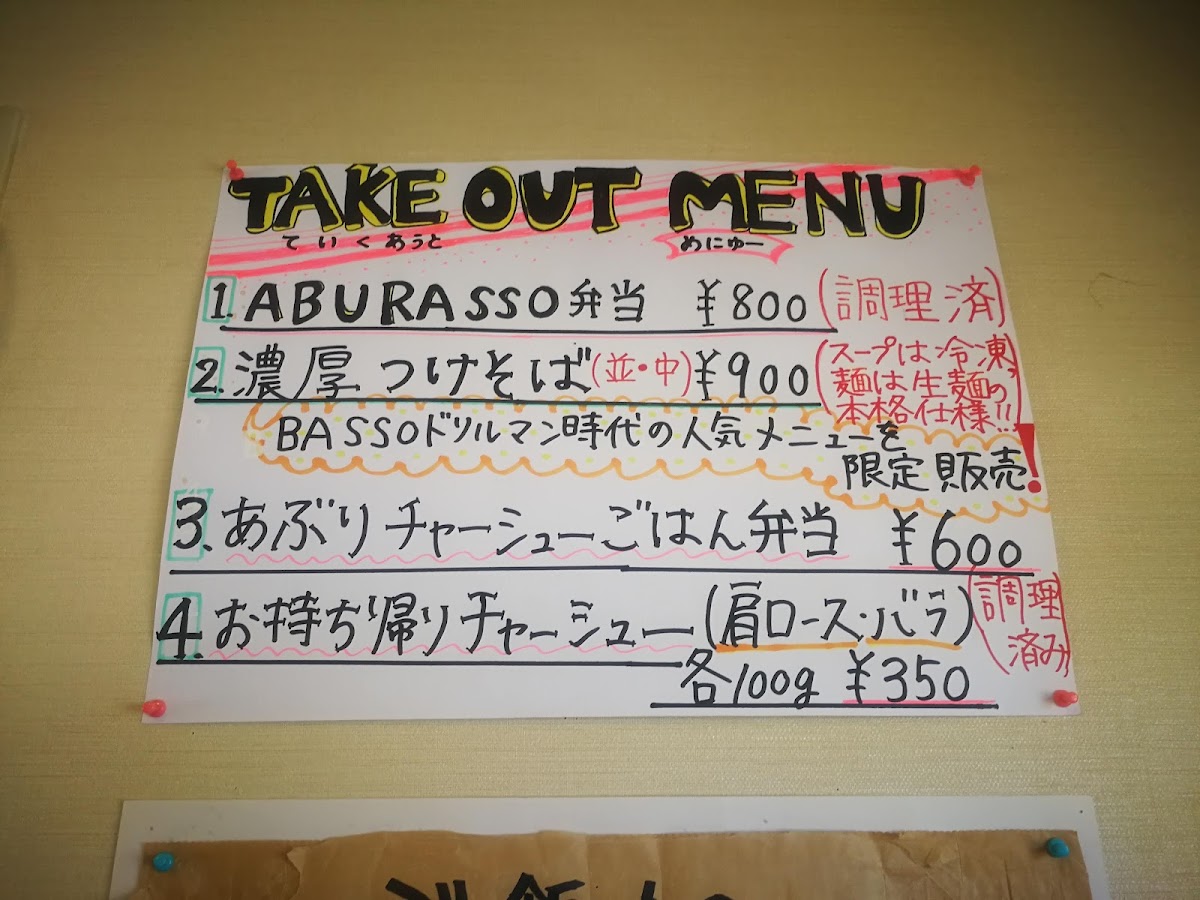 TAKE OUT MENU
ていくあうと めにゅー
1. ABURASSO弁当 ¥800 (調理済)
2. 濃厚つけそば(並・中) ¥900
(スープは冷凍、
麺は生麺の
本格仕様!!)
BASSOドリルマン時代の人気メニューを
限定販売!
3. あぶりチャーシューごはん弁当 ¥600
4. お持ち帰りチャーシュー(肩ロース・バラ)
各100g ¥350
(調理
済み)